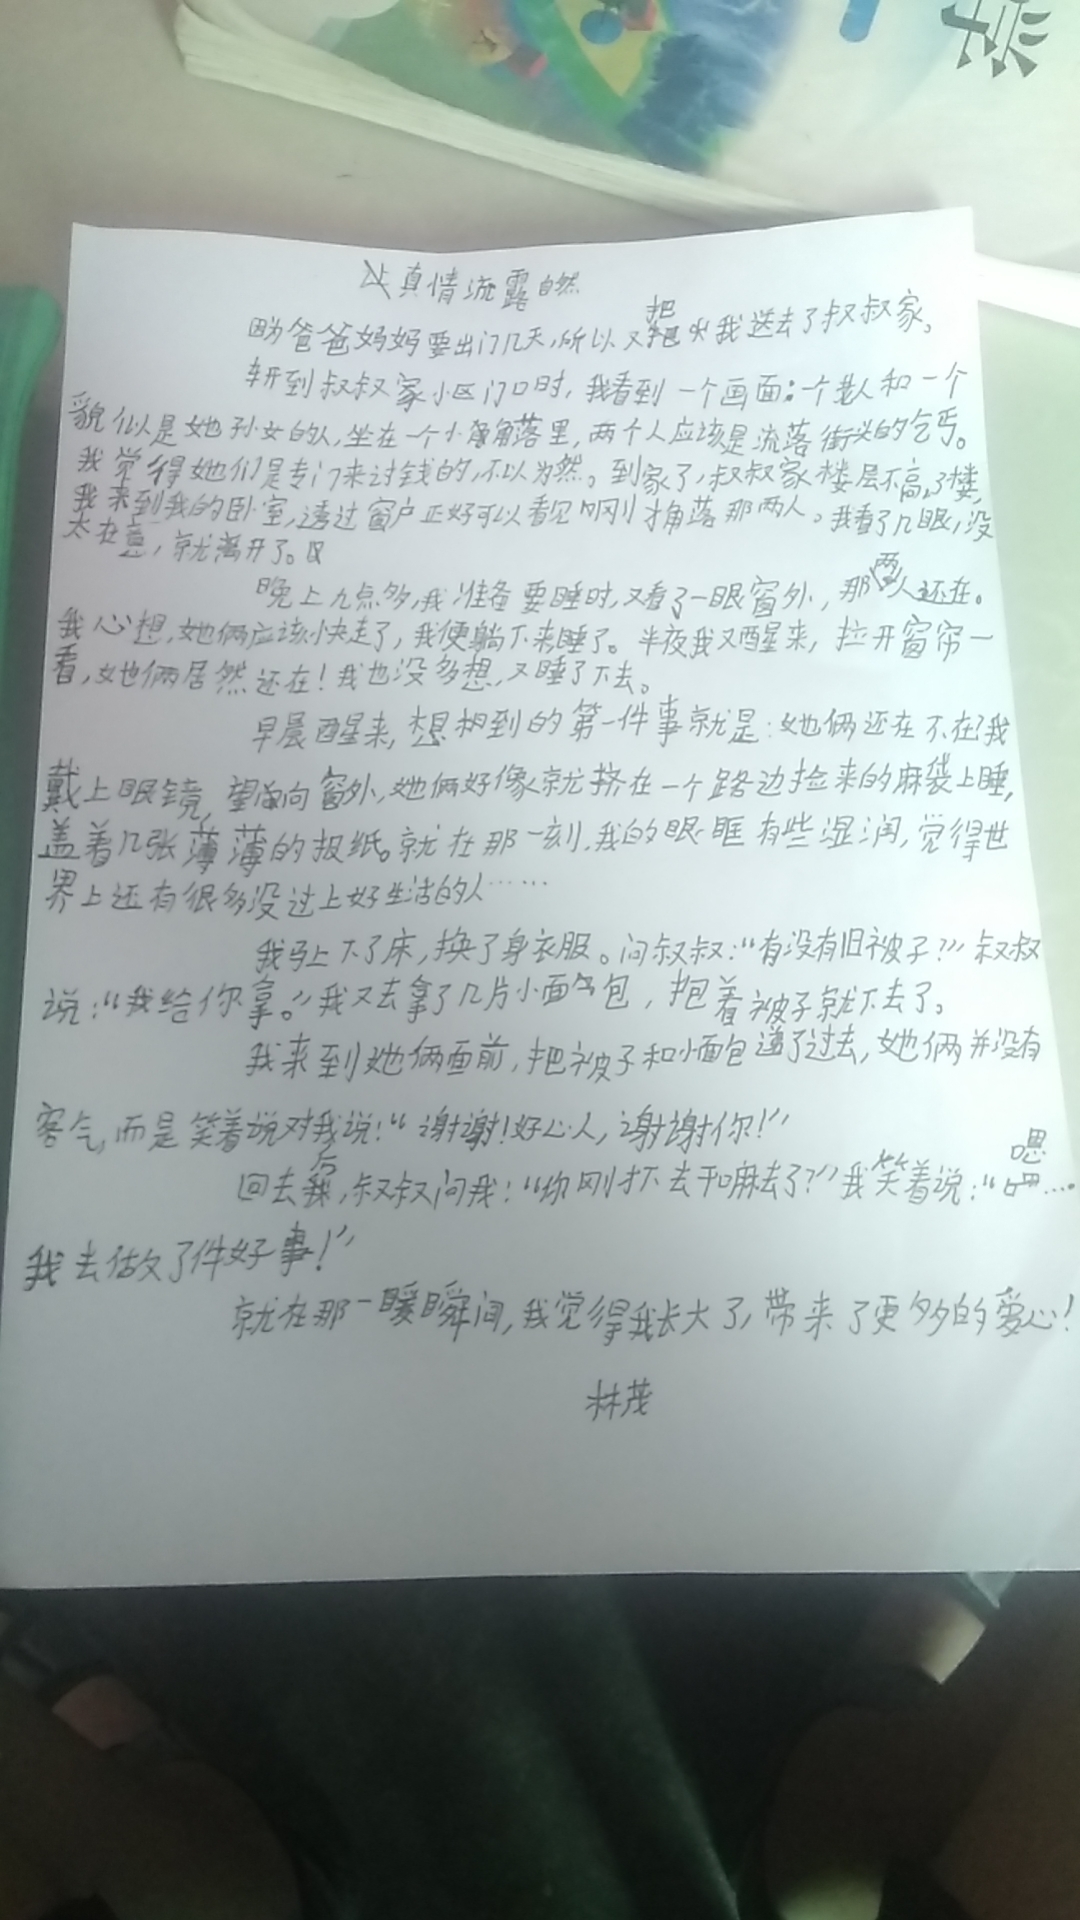 真情流露自然
因为爸爸妈妈要出门几天,所以又把我送去了叔叔家。
到叔叔家小区门口时,我看到一个画面:一个老人和一个
貌似是她孙女的人,坐在一个小角落里,两个人应该是流落街头的乞丐。
我觉得她们是专门来讨钱的,不以为然。到家了,叔叔家楼层不高,3楼,
我来到我的卧室,透过窗户正好可以看见刚才角落那两人。我看了几眼,没
太在意,就离开了。
晚上九点多,我准备要睡时,又看了一眼窗外,那两人还在。
我心想,她俩应该快走了,我便躺下来睡了。半夜我又醒来,拉开窗帘一
看,她俩居然还在!我也没多想,又睡了下去。
早晨醒来,想到的第一件事就是:她俩还在不在?我
戴上眼镜,望向窗外,她俩好像就挤在一个路边捡来的麻袋上睡,
盖着几张薄薄的报纸。就在那一刻,我的眼眶有些湿润,觉得世
界上还有很多没过上好生活的人……
我马上下了床,换了身衣服。问叔叔:“有没有旧被子?”叔叔
说:“我给你拿。”我又去拿了几片小面包,抱着被子就下去了。
我来到她俩面前,把被子和小面包递了过去,她俩并没有
客气,而是笑着说对我说:“谢谢!好心人,谢谢你!”
回去后,叔叔问我:“你刚才下去干嘛去了?”我笑着说:“嗯……
我去做了件好事!”
就在那一瞬间,我觉得我长大了,带来了更多的爱心!
林茂